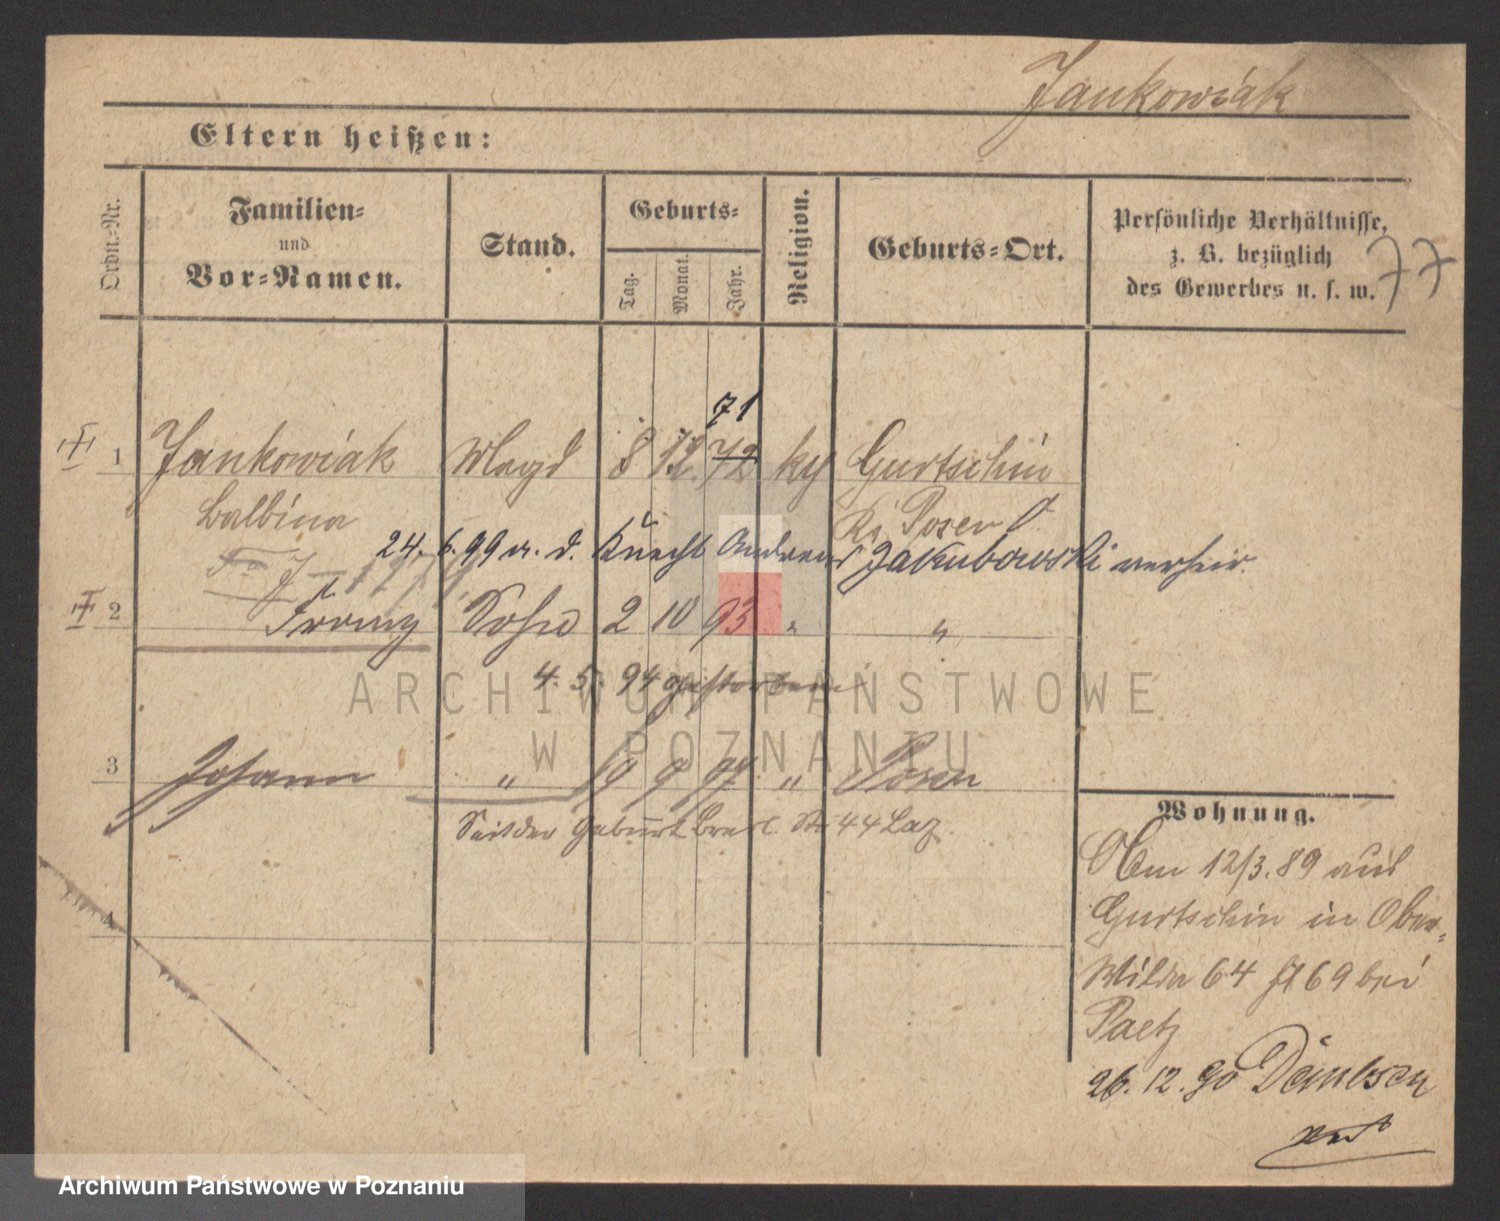 Jankowiak
Eltern heißen:
Ordn.-Nr.
Familien-
und
Vor-Namen.
Stand.
Geburts-
Tag.
Monat.
Jahr.
Religion.
Geburts-Ort.
Persönliche Verhältnisse,
z. B. bezüglich
des Gewerbes u. s. w.
77
71
1 Jankowiak Magd 8 12. 72 kg Gurtschin
Balbina Kr. Posen
24. 6. 99 m. d. Knecht Andreas Jakubowski verheir.
2 Franz Sohn 2 10 93 " "
4. 5. 94 gestorben
3 Johann " 19 9 97 " Posen
Seit der Geburt Bresl. Str 44 Laz.
4
Wohnung.
Am 12/3. 89 aus
Gurtschin in Ober-
Wilda 64 69 bei
Paetz
26. 12. 90
ARCHIWUM PAŃSTWOWE
W POZNANIU
Archiwum Państwowe w Poznaniu